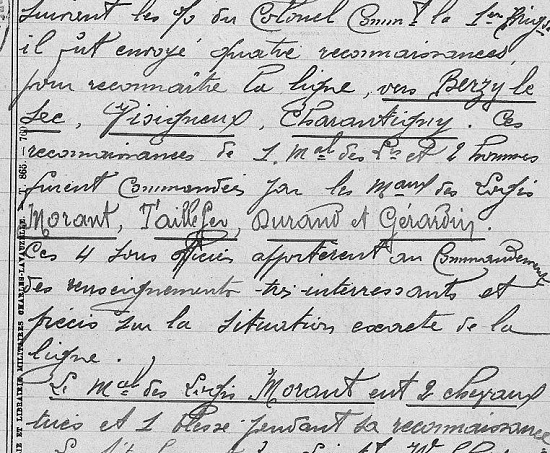 suivent les %o du Colonel Commt la 1ere Brig
il fût envoyé quatre reconnaissances,
pour reconnaître la ligne, vers Berzy le
Sec, Visigneux, Charantigny. Ces
reconnaissances de 1 Mal des Lis et 2 hommes
furent commandées par les Maux des Logis
Morant, Taillefer, Durand et Gérardin.
Ces 4 sous officiers apportèrent au Commandement
des renseignements très interressants et
précis sur la situation exacte de la
ligne.
Le Mal des Logis Morant eut 2 chevaux
tués et 1 blessé pendant sa reconnaissance
IE ET LIBRAIRIE MILITAIRES CHARLES-LAVAUZELLE. — 865. — 70